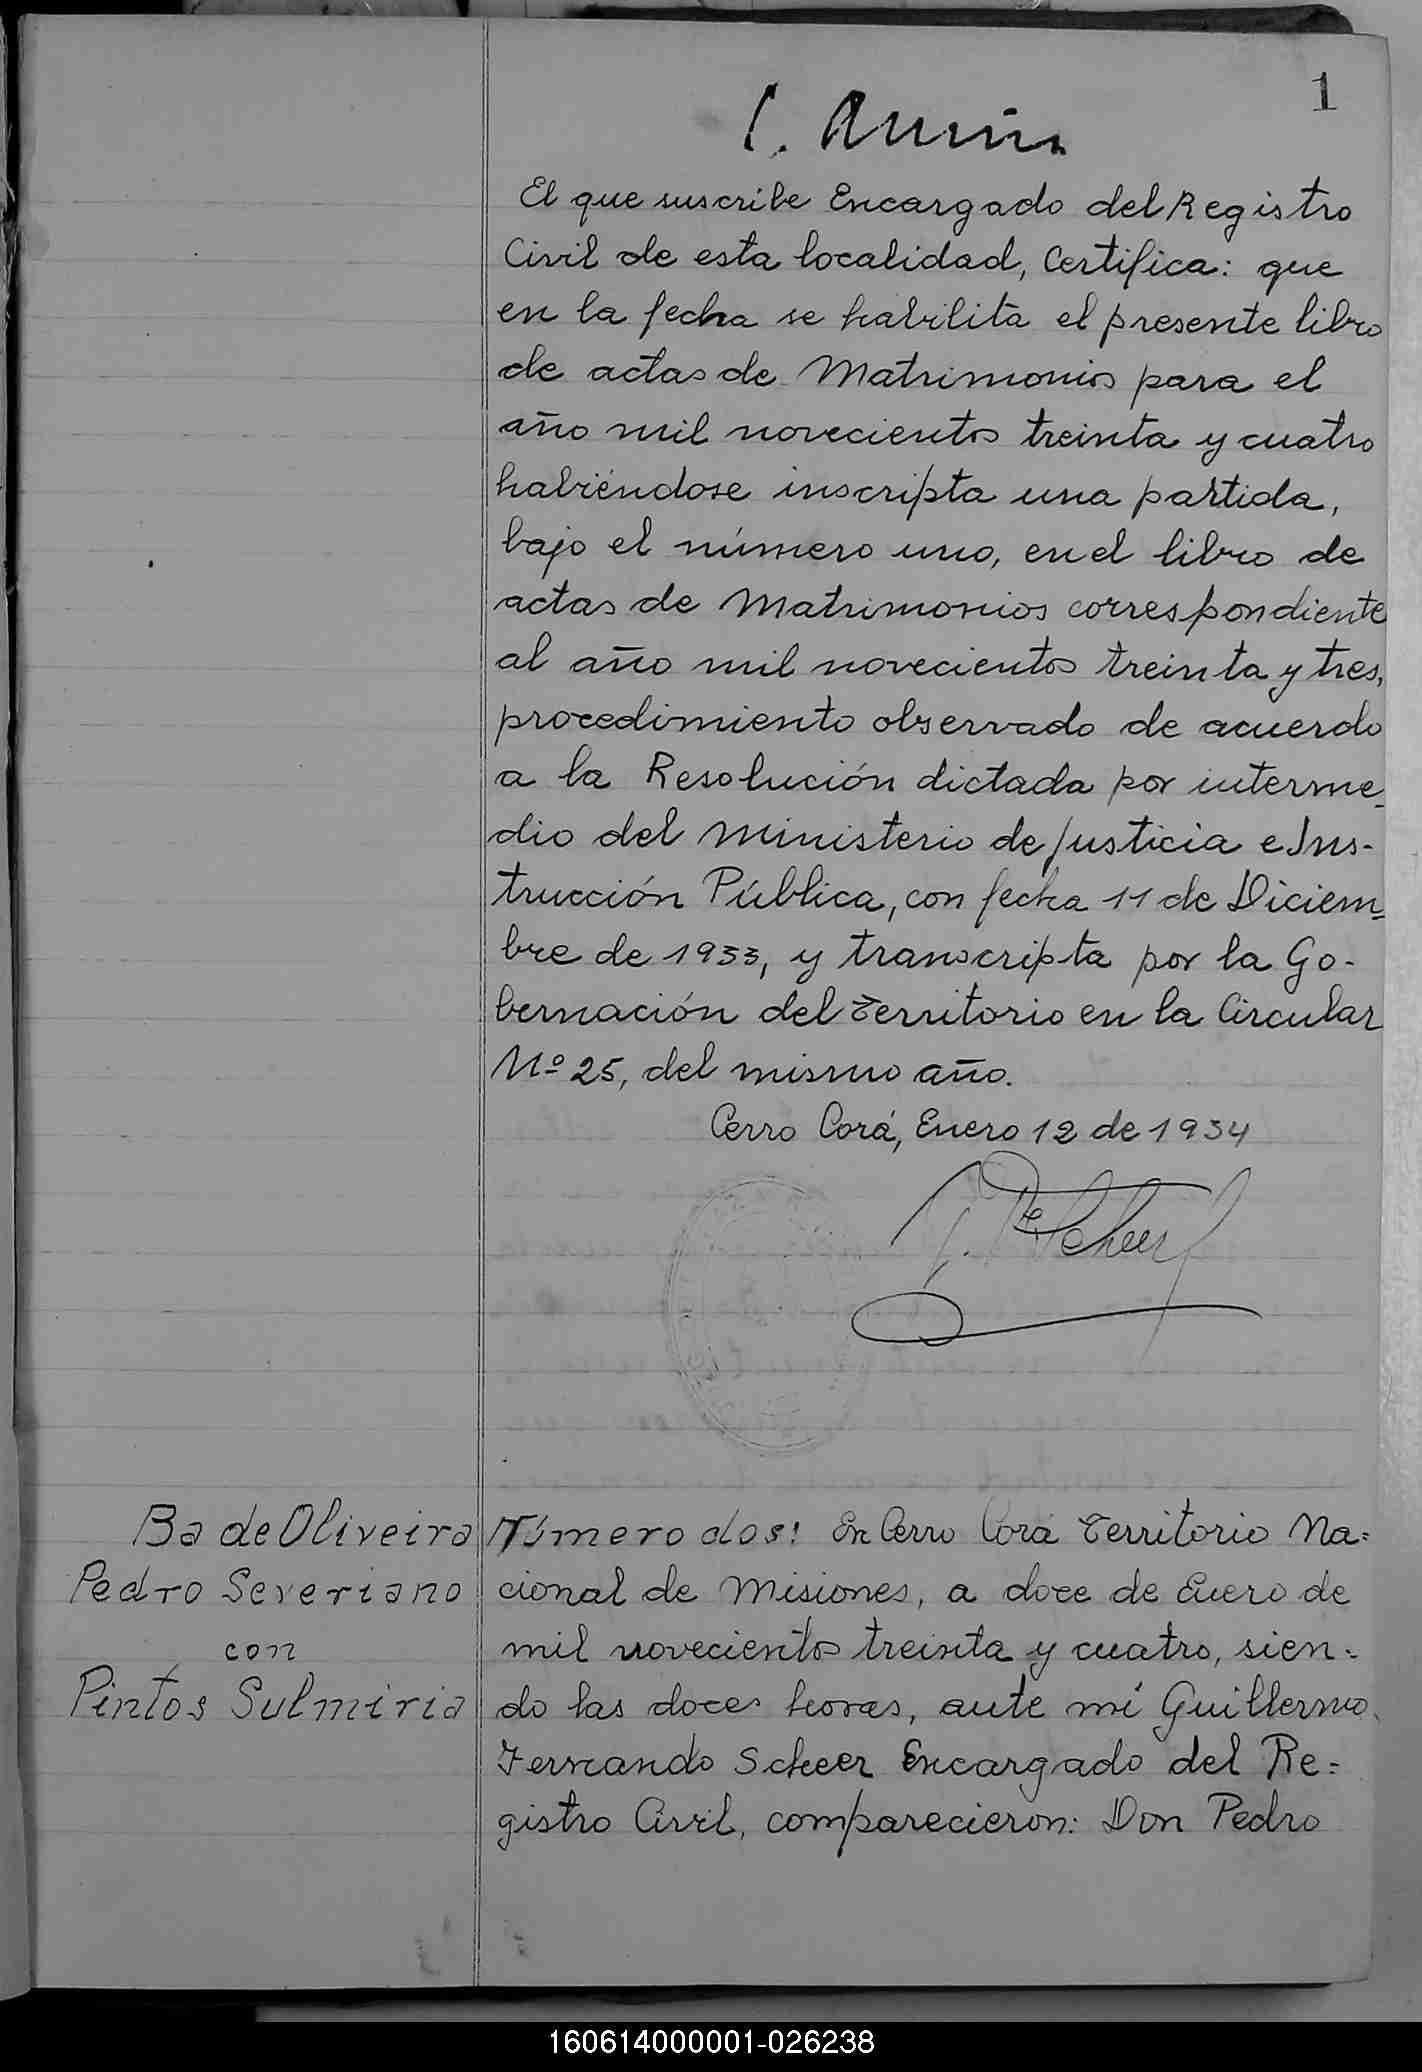 1
El que suscribe Encargado del Registro
Civil de esta localidad, Certifica: que
en la fecha se habilita el presente libro
de actas de Matrimonios para el
año mil novecientos treinta y cuatro
habiéndose inscripta una partida,
bajo el número uno, en el libro de
actas de Matrimonios correspondiente
al año mil novecientos treinta y tres,
procedimiento observado de acuerdo
a la Resolución dictada por interme-
dio del Ministerio de Justicia e Ins-
trucción Pública, con fecha 11 de Diciem=
bre de 1933, y transcripta por la Go-
bernación del Territorio en la Circular
Nº 25, del mismo año.
Cerro Corá, Enero 12 de 1934
Scheer
Ba de Oliveira
Pedro Severiano
con
Pintos Sulmiria
Número dos: En Cerro Corá Territorio Na=
cional de Misiones, a doce de Enero de
mil novecientos treinta y cuatro, sien=
do las doce horas, ante mí Guillermo
Fernando Scheer Encargado del Re=
gistro Civil, comparecieron: Don Pedro
160614000001-026238